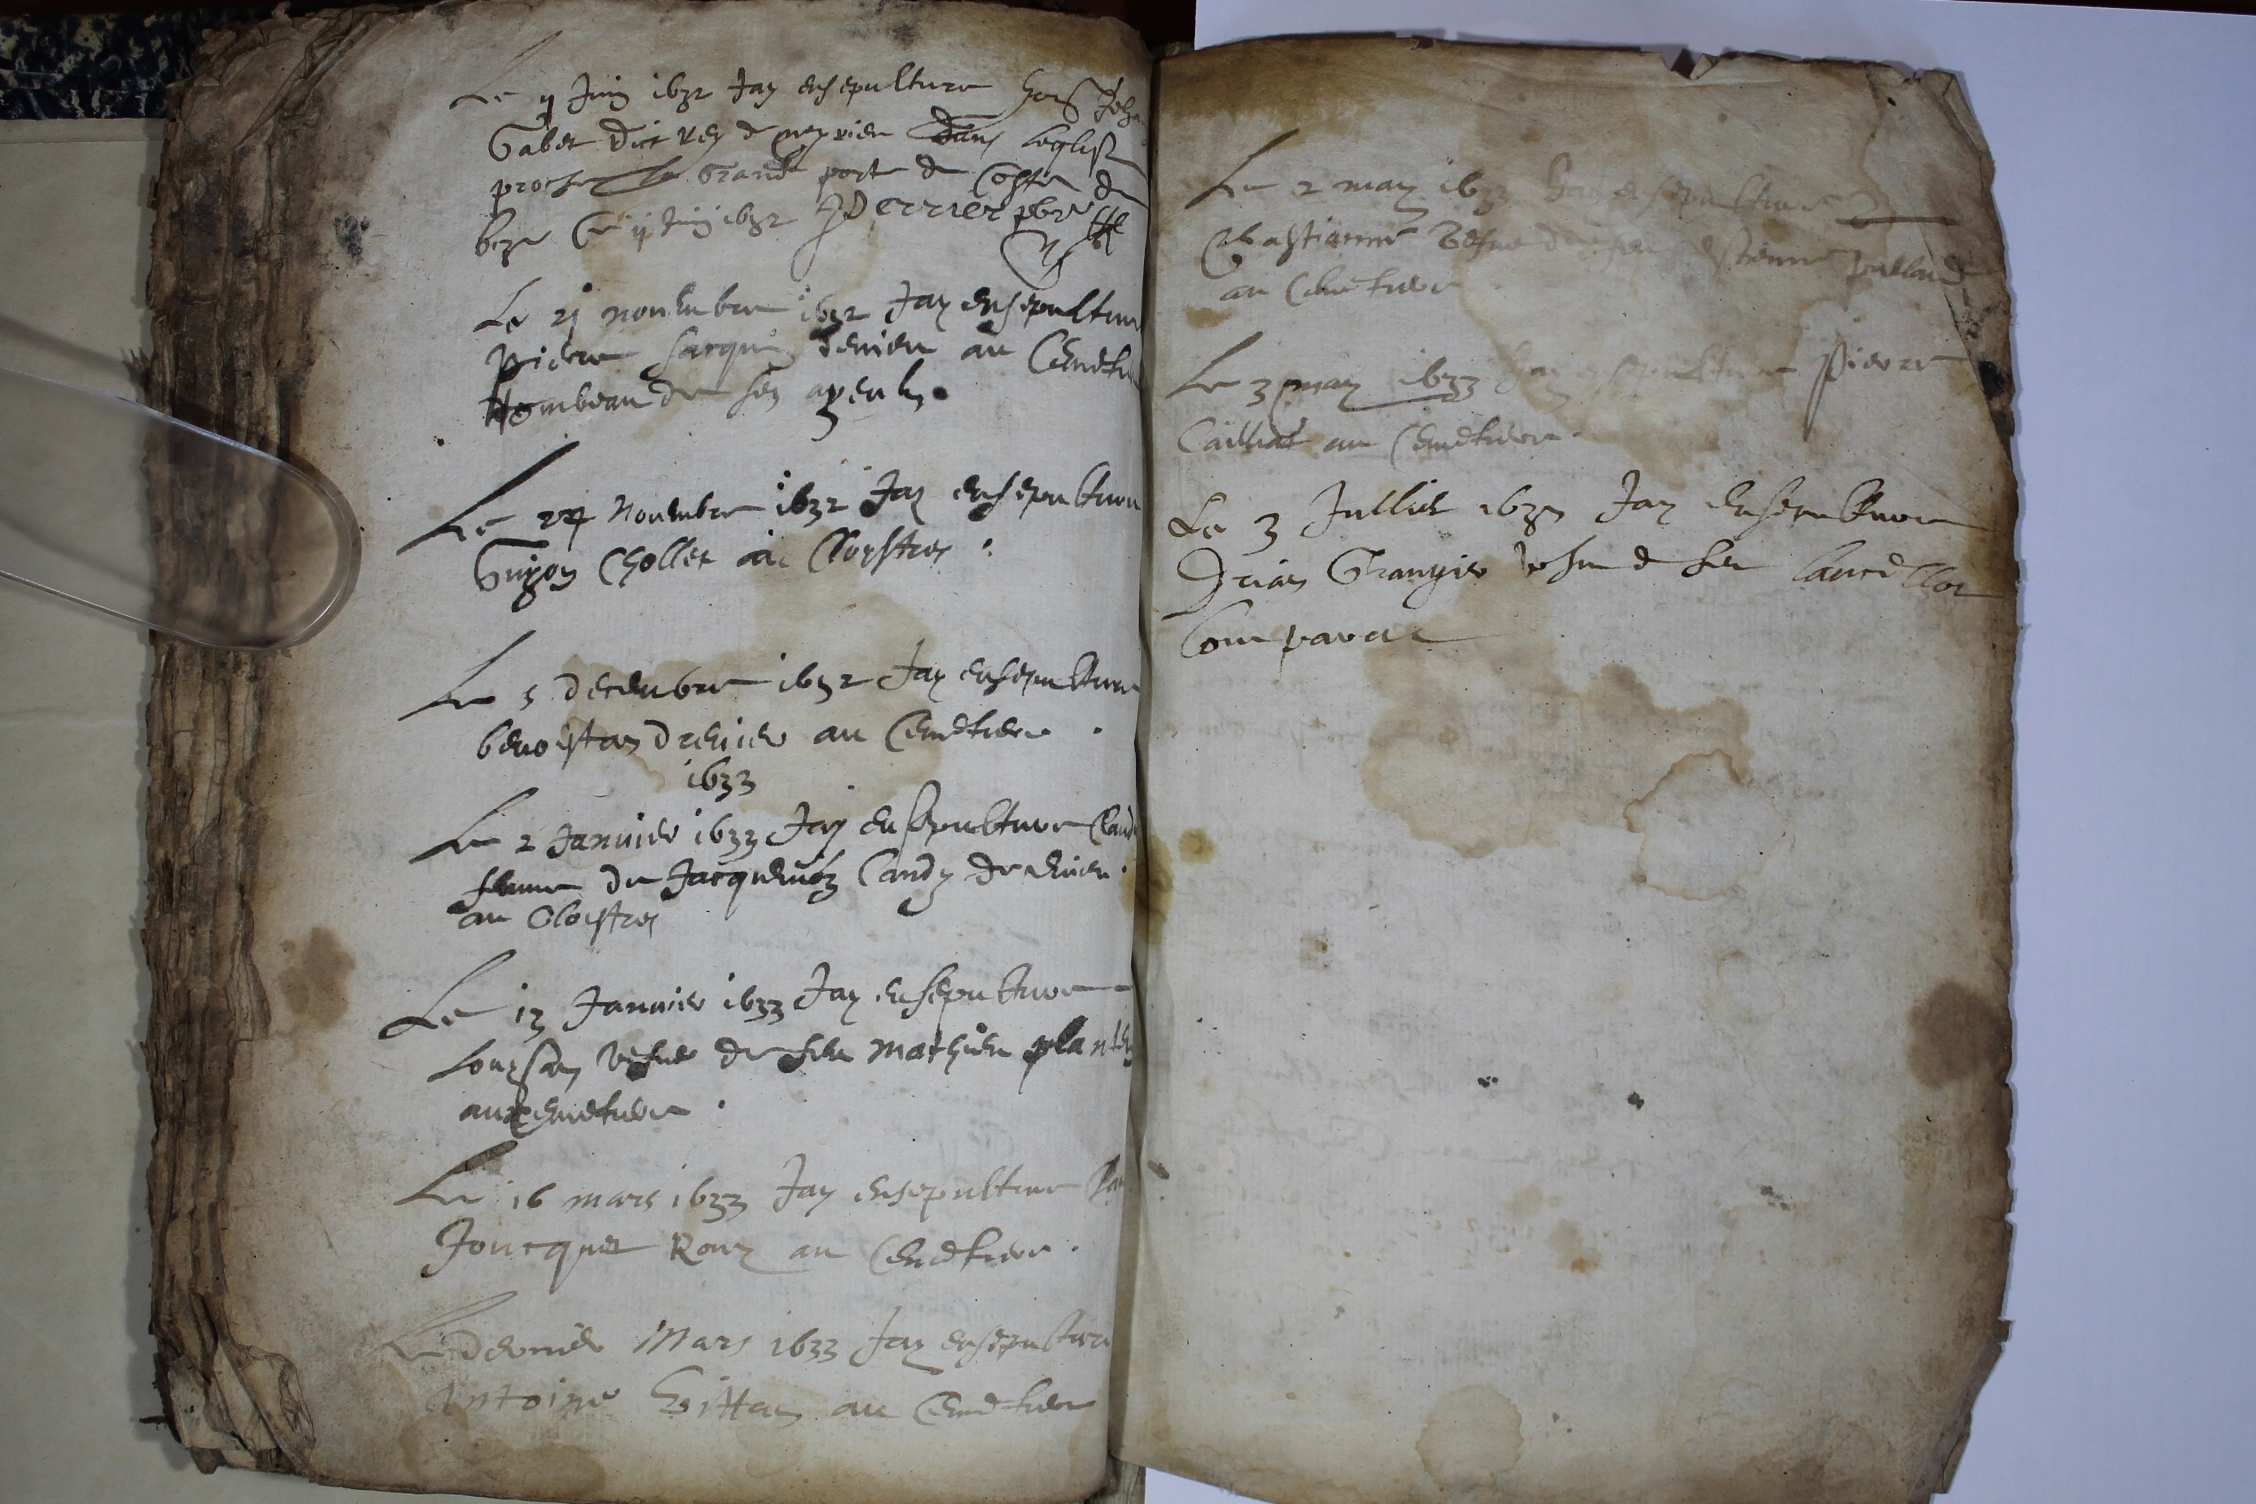 Le ij Juin 1632 Jay ensepulture
Gabet dict Rey de dans leglise
proche la Grand porte de coste de
bize Ce ij Juin 1632 JPerrier pbre
Le 21 nouembre 1632 Jay ensepulture
pierre Jarquin deuieu au Cemetiere
tombeau de ses
Le 24 Nouembre 1632 Jay ensepulture
Guyon Chollet au Cloystres
Le 5 decembre 1632 Jay ensepulture
benoistan dreuier au Cemetiere
1633
Le 2 Januier 1633 Jay ensepulture Claud
femme de Candy de
au Cloistres
Le 13 Januier 1633 Jay ensepulture
Loupsan vefue de feu mathieu
au Cemetiere
Le 16 mars 1633 Jay ensepulture
Joucquet Roux au Cemetiere
Le dernier Mars 1633 Jay ensepulture
Antoine Gittan au Cemetiere
Le 2 may 1633 Jay ensepulture
Chastianne vefue de feu estienne
au Cemetiere
Le 3 may 1633 Jay ensepulture pierre
Cailliat au Cemetiere
Le 3 Julliet 1633 Jay ensepulture
Grangier vefue de feu Lancellot
Comparat